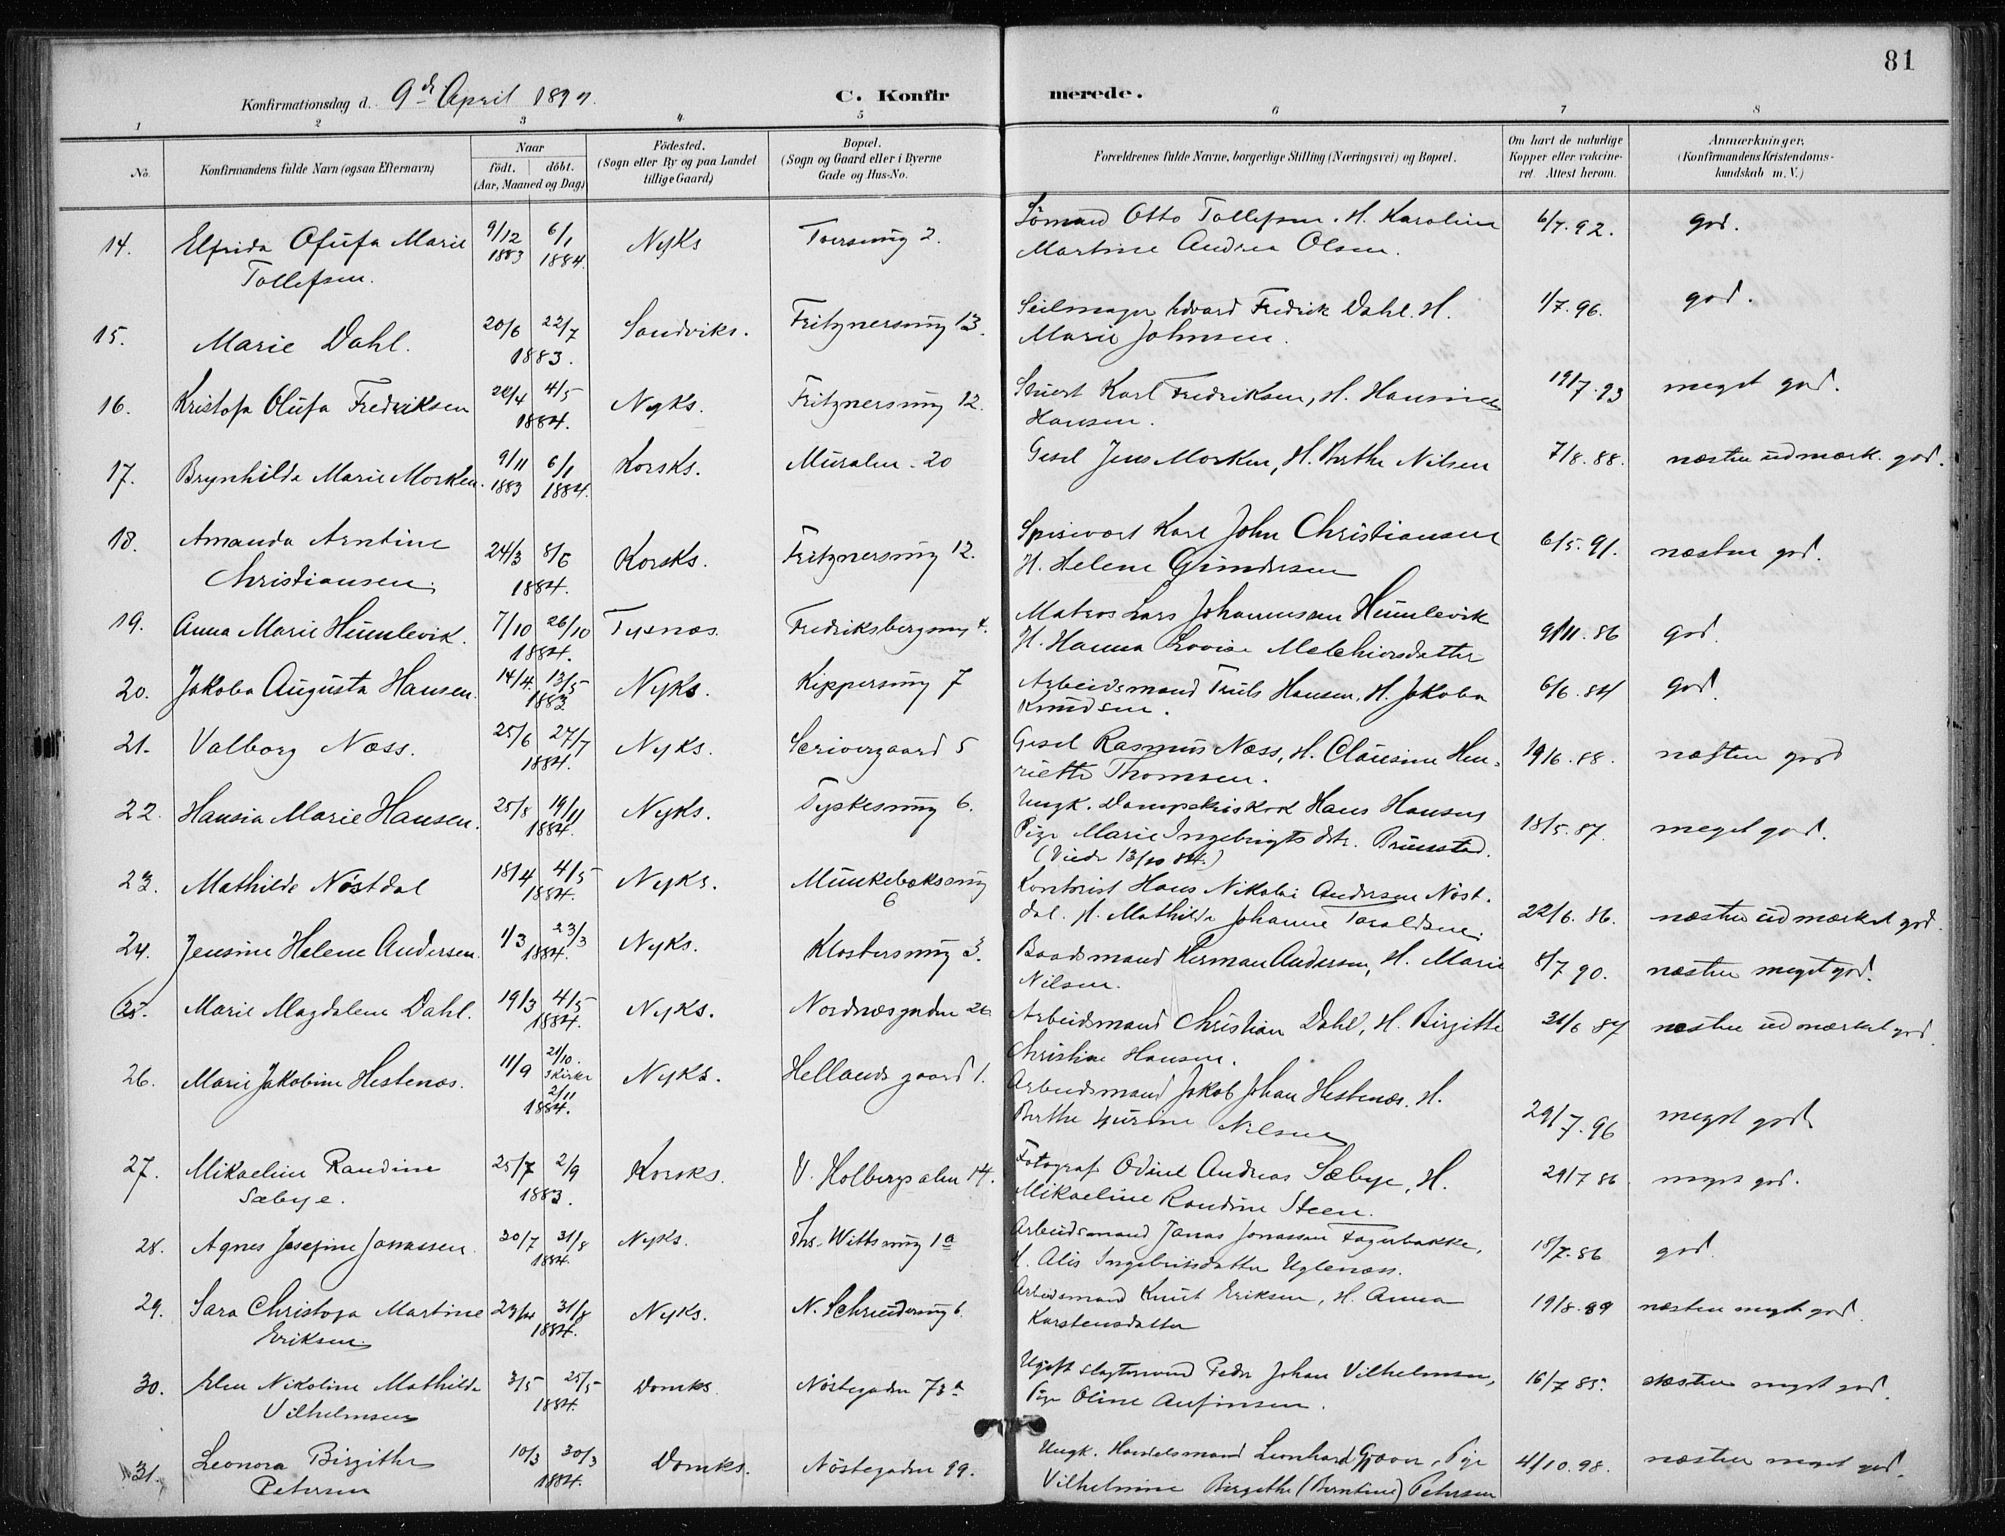 81
Konfirmationsdag d. 9de April 1899.
C. Konfirmerede.
1 2 3 4 5 6 7 8
No.
Konfirmandens fulde Navn (ogsaa Efternavn)
Naar
födt. döbt.
(Aar, Maaned og Dag)
Födested.
(Sogn eller By og paa Landet
tillige Gaard)
Bopæl.
(Sogn og Gaard eller i Byerne
Gade og Hus-No.
Forældrenes fulde Navne, borgerlige Stilling (Næringsvei) og Bopæl.
Om havt de naturlige
Kopper eller vakcine-
ret. Attest herom.
Anmærkninger.
(Konfirmandens Kristendoms-
kundskab m. V.)
14. Elfrida Olufa Marie 9/12 1883 6/1 1884. Nyks Toersmug 2. Sömand Otto Tollefsen. H. Karoline 6/7.92. god.
Tollefsen. Martine Andrea Olsen.
15. Marie Dahl. 20/6 22/7 1883. Sandviks. Fritznersmug 13. Seilmager Edvard Fredrik Dahl. H. 1/7.96. god.
Marie Johnsen.
16. Kristofa Olufa Fredriksen 20/4 4/5 1884. Nyks. Fritznersmug 12. Stuert Karl Fredriksen, H. Hansine 19/7.93 meget god.
Hansen.
17. Brynhilda Marie Morken. 9/11 1883 6/1 1884. Korsks. Muralm. 20 Gesel Jens Morken, H. Berthe Nilsen 7/8.88. næsten udmærk. god.
18. Amanda Arntine 24/3 8/6 1884. Korsks. Fritznersmug 12. Spisevert Karl John Christiansen 6/5.91. næsten god.
Christiansen. H. Helene Gundersen
19. Anna Marie Humlevik. 7/10 26/10 1884. Tysnæs. Fredriksbergsmug 4. Matros Lars Johannesen Humlevik 9/11.86 god.
H. Hanna Lovise Melchiorsdatter
20. Jakoba Augusta Hansen. 14/4. 13/5 1883 Nyks. Kippersmug 7 Arbeidsmand Truls Hansen, H. Jakoba 6/6.84 god.
Knudsen.
21. Valborg Næss. 25/6 27/7 1884. Nyks. Scrivergaard 5 Gesel Rasmus Næss, H. Clausine Hen- 19/6.88. næsten god
riette Thomsen.
22. Hansia Marie Hansen. 25/8 19/11 1884. Nyks. Tyskesmug 6. Ungk. Dampskibskok Hans Hansen 18/5.87. meget god.
Pige Marie Ingebrigtsdtr. Bruusted.
(Viede 13/10 84.)
23. Mathilde Nöstdal 18/4 4/5 1884. Nyks. Munkebæksmug 6 Kontorist Hans Nikolai Andersen Nöst- 22/6.86. næsten udmærket god.
dal. H. Mathilde Johanne Taraldsen.
24. Jensine Helene Andersen. 1/3 23/3 1884. Nyks. Klostersmug 3. Baadsmand Herman Andersen, H. Marie 8/7 90. næsten meget god.
Nilsen.
25. Marie Magdalene Dahl. 19/3 4/5 1884. Nyks. Nordnæsgaden 20 Arbeidsmand Christian Dahl, H. Birgitte 21/6 87 næsten udmærket god.
Christine Hansen.
26. Marie Jakobine Hestenæs. 11/9 21/10. i Kirke 2/11 1884. Nyks. Hellands gaard 1. Arbeidsmand Jakob Johan Hestenæs. H. 29/7.96 meget god
Berthe Gurine Nilsen
27. Mikaeline Randine 25/7 2/9 1883. Korsks. V. Holbergs alm 14. Fotograf Odinel Andreas Sæbye, H. 29/7 86 meget god.
Sæbye. Mikaeline Randine Steen.
28. Agnes Josefine Jonassen. 20/7 31/8 1884. Nyks. Ths. Wittsmug 1a Arbeidsmand Jonas Jonassen Fagerbakke, 18/7.86 god.
H. Alis Ingebrigtsdatter Uglenæss.
29. Sara Christofa Martine 23/4 31/8 1884. Nyks. N. Schreudersmug 6. Arbeidsmand Knut Eriksen, H. Anna 19/8.89 næsten meget god
Eriksen. Karstensdatter
30. Elen Nikoline Mathilde 3/5 25/5 1884. Domks. Nöstegaden 73a Ugift slagtersvend Peder Johan Vilhelmsen, 16/7 85. næsten meget god.
Vilhelmsen Pige Oline Anfinsen.
31. Leonora Birgithe 10/3 30/3 1884. Domks. Nöstegaden 99. Ungk. Handelsmand Leonhard Gjæver, Pige 4/10.98. næsten meget god.
Petersen Vilhelmine Birgithe (Berntine) Petersen